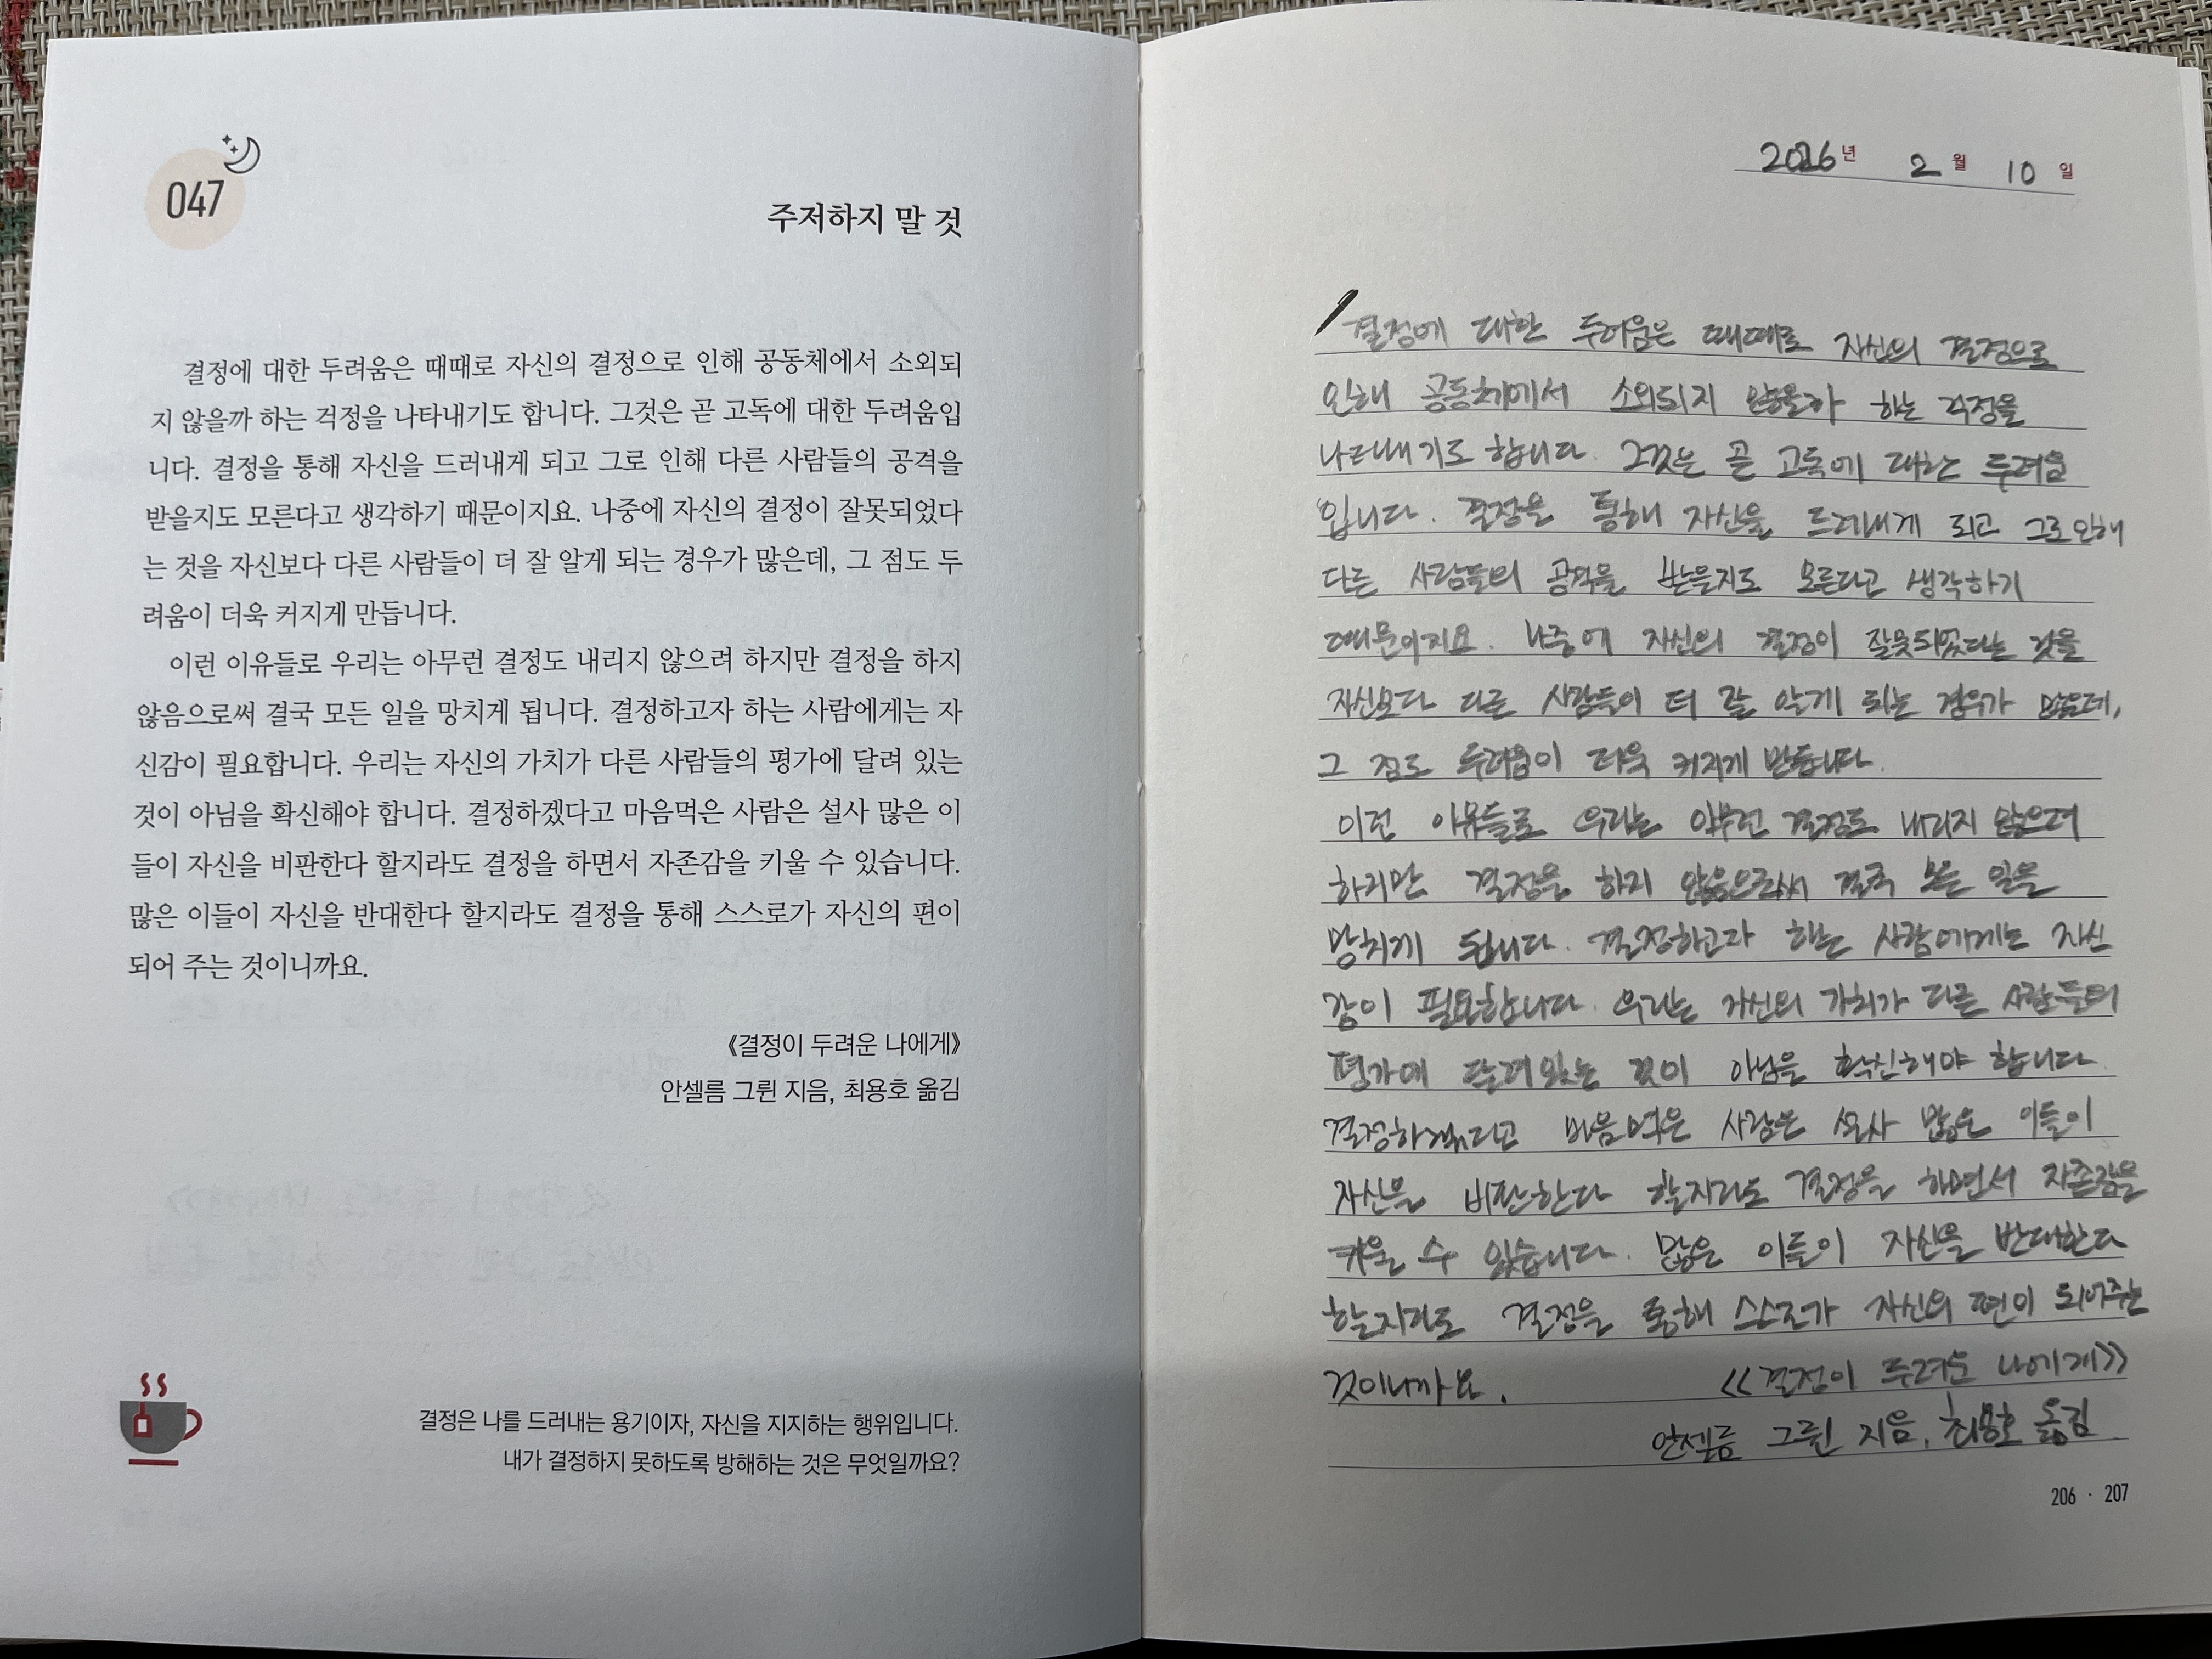 047
주저하지 말 것
결정에 대한 두려움은 때때로 자신의 결정으로 인해 공동체에서 소외되
지 않을까 하는 걱정을 나타내기도 합니다. 그것은 곧 고독에 대한 두려움입
니다. 결정을 통해 자신을 드러내게 되고 그로 인해 다른 사람들의 공격을
받을지도 모른다고 생각하기 때문이지요. 나중에 자신의 결정이 잘못되었다
는 것을 자신보다 다른 사람들이 더 잘 알게 되는 경우가 많은데, 그 점도 두
려움이 더욱 커지게 만듭니다.
이런 이유들로 우리는 아무런 결정도 내리지 않으려 하지만 결정을 하지
않음으로써 결국 모든 일을 망치게 됩니다. 결정하고자 하는 사람에게는 자
신감이 필요합니다. 우리는 자신의 가치가 다른 사람들의 평가에 달려 있는
것이 아님을 확신해야 합니다. 결정하겠다고 마음먹은 사람은 설사 많은 이
들이 자신을 비판한다 할지라도 결정을 하면서 자존감을 키울 수 있습니다.
많은 이들이 자신을 반대한다 할지라도 결정을 통해 스스로가 자신의 편이
되어 주는 것이니까요.
《결정이 두려운 나에게》
안셀름 그륀 지음, 최용호 옮김
결정은 나를 드러내는 용기이자, 자신을 지지하는 행위입니다.
내가 결정하지 못하도록 방해하는 것은 무엇일까요?
2026년 2월 10일
결정에 대한 두려움은 때때로 자신의 결정으로
인해 공동체에서 소외되지 않을까 하는 걱정을
나타내기도 합니다. 그것은 곧 고독에 대한 두려움
입니다. 결정을 통해 자신을 드러내게 되고 그로 인해
다른 사람들의 공격을 받을지도 모른다고 생각하기
때문이지요. 나중에 자신의 결정이 잘못되었다는 것을
자신보다 다른 사람들이 더 잘 알게 되는 경우가 많은데,
그 점도 두려움이 더욱 커지게 만듭니다.
이런 이유들로 우리는 아무런 결정도 내리지 않으려
하지만 결정을 하지 않음으로써 결국 모든 일을
망치게 됩니다. 결정하고자 하는 사람에게는 자신
감이 필요합니다. 우리는 자신의 가치가 다른 사람들의
평가에 달려있는 것이 아님을 확신해야 합니다.
결정하겠다고 마음먹은 사람은 설사 많은 이들이
자신을 비판한다 할지라도 결정을 하면서 자존감을
키울 수 있습니다. 많은 이들이 자신을 반대한다
할지라도 결정을 통해 스스로가 자신의 편이 되어주는
것이니까요. 《결정이 두려운 나에게》
안셀름 그륀 지음, 최용호 옮김
206 · 207